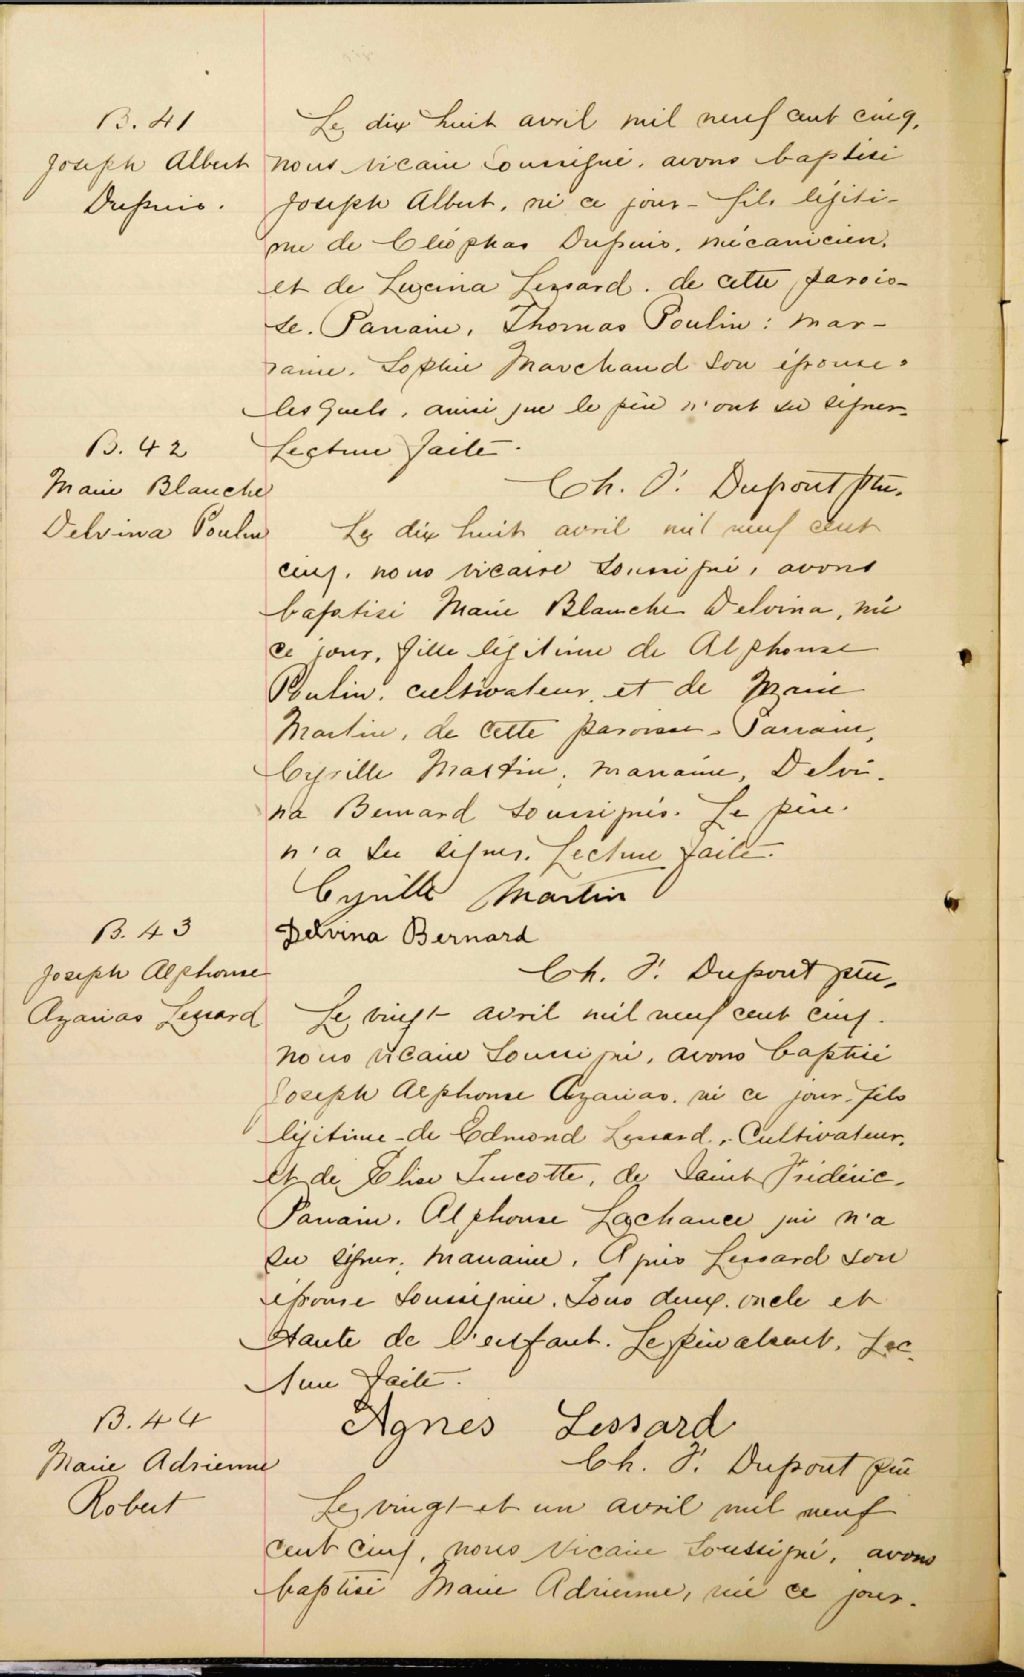 B. 41
Joseph Albert
Dupuis.
Le dix huit avril mil neuf cent cinq,
nous vicaire soussigné, avons baptisé
Joseph Albert, né ce jour - fils légiti-
me de Cléophas Dupuis, mécanicien,
et de Lucina Lessard, de cette parois-
se. Parrain, Thomas Poulin : mar-
raine, Sophie Marchand son épouse,
lesquels, ainsi que le père n'ont su signer.
Lecture faite.
Ch. F. Dupont ptre.
B. 42
Marie Blanche
Delvina Poulin
Le dix huit avril mil neuf cent
cinq, nous vicaire soussigné, avons
baptisé Marie Blanche Delvina, née
ce jour, fille légitime de Alphonse
Poulin, cultivateur, et de Marie
Martin, de cette paroisse. Parrain,
Cyrille Martin; marraine, Delvi-
na Bernard soussignés. Le père
n'a su signer. Lecture faite.
Cyrille Martin
Delvina Bernard
Ch. F. Dupont ptre.
B. 43
Joseph Alphonse
Azarias Lessard
Le vingt avril mil neuf cent cinq,
nous vicaire soussigné, avons baptisé
Joseph Alphonse Azarias, né ce jour, fils
légitime de Edmond Lessard, Cultivateur,
et de Elise Turcotte, de Saint Frédéric,
Parrain, Alphonse Lachance qui n'a
su signer; marraine, Agnès Lessard son
épouse soussignée. Tous deux, oncle et
tante de l'enfant. Le père absent. Lec-
ture faite.
Agnes Lessard
Ch. F. Dupont ptre
B. 44
Marie Adrienne
Robert
Le vingt et un avril mil neuf
cent cinq, nous vicaire soussigné, avons
baptisé Marie Adrienne, née ce jour.